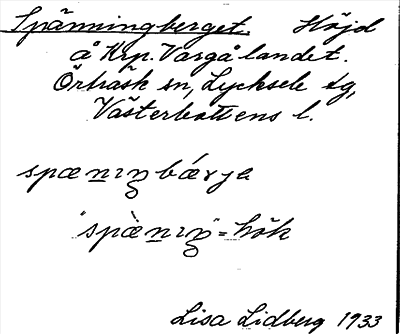 Spänningberget. Höjd
å Krp. Vargålandet.
Örträsk sn, Lycksele tg,
Västerbottens l.
spænıŋ bǽrjə
"spæ̀nıŋ" = hök
Lisa Lidberg 1933